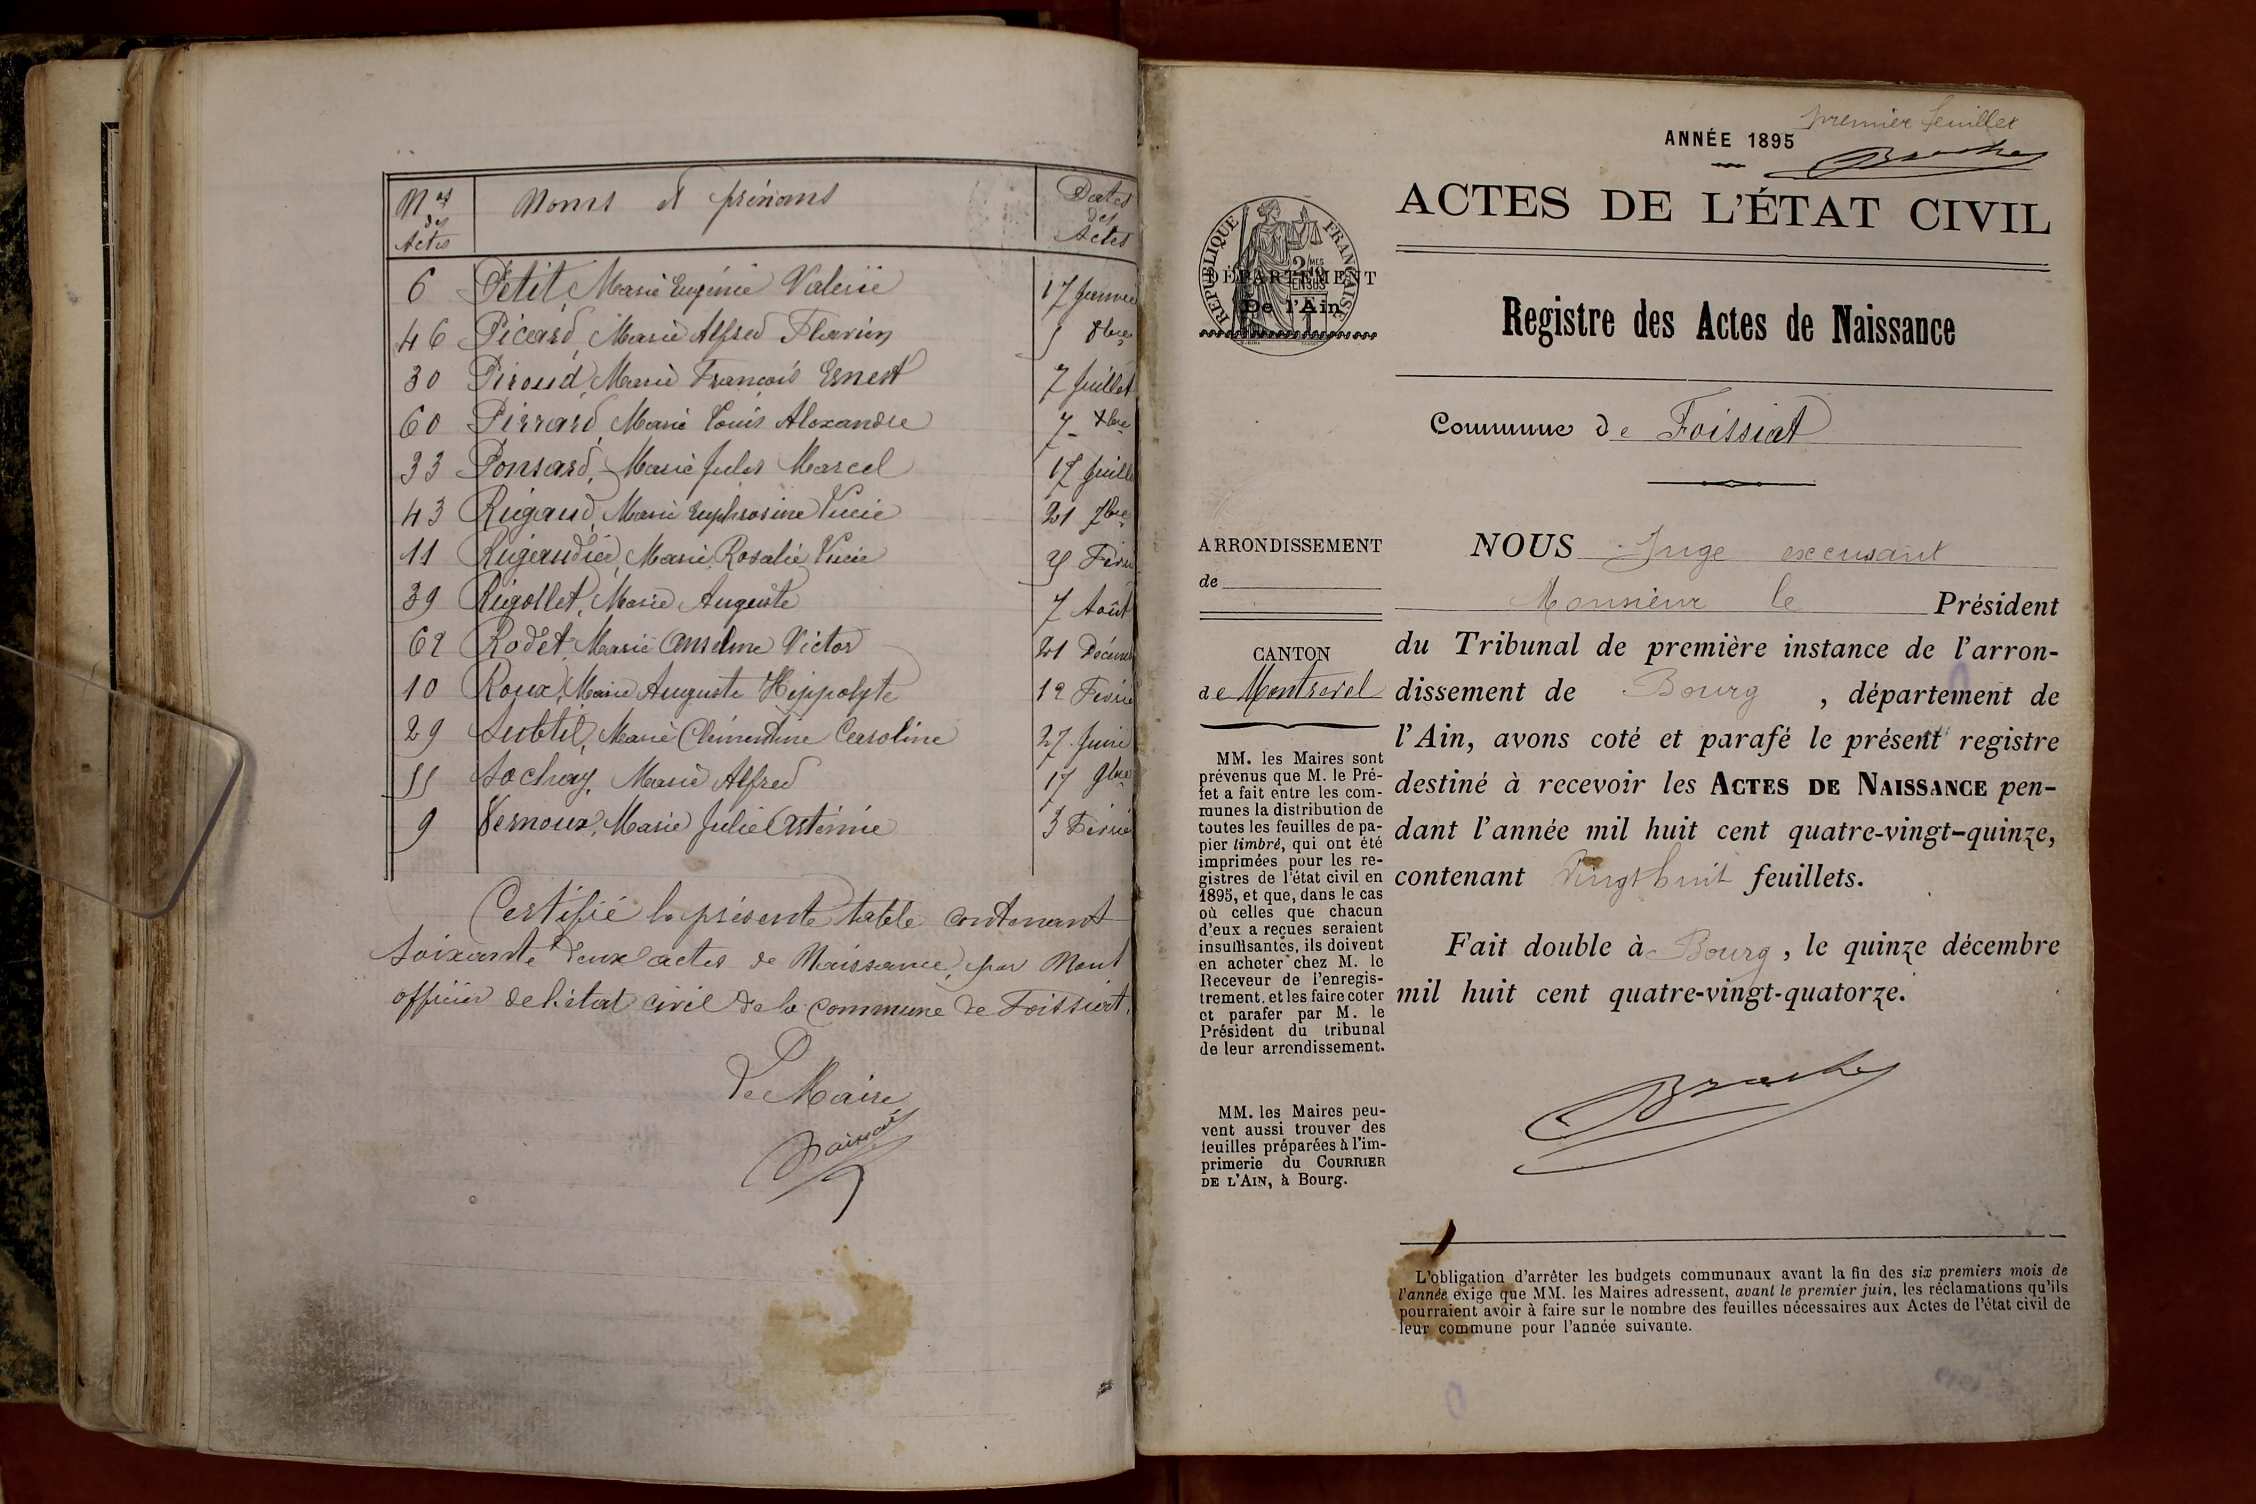 Nos des Actes | Noms et prénoms | Dates des Actes
6 Petit, Marie Eugénie Valerie 17 Janvie
46 Picard, Marie Alfred Flavien 5 8bre
30 Piroud, Marie François Ernest 7 Juillet
60 Pirrard, Marie Louis Alexandre 7 Xbre
33 Ponsard, Marie Jules Marcel 17 Juill
43 Rigaud, Marie Euphrosine Lucie 21 7bre
11 Rigaudier, Marie Rosalie Lucie 25 Févri
39 Rigollet, Marie Auguste 7 Août
62 Rodet, Marie Anselme Victor 21 Décem
10 Roux, Marie Auguste Hippolyte 12 Févrie
29 Subtil, Marie Clémentine Caroline 27 Juin
55 Sochay, Marie Alfred 17 9bre
9 Vernoux, Marie Julie Arténie 3 Févrie
Certifié la présente table contenant
soixante deux actes de Naissance, par Nous
officier de l'état civil de la commune de Foissiat.
Le Maire
premier feuillet
ANNÉE 1895
ACTES DE L'ÉTAT CIVIL
RÉPUBLIQUE FRANÇAISE
2/10 MES EN SUS
DÉPARTEMENT
De l'Ain
Registre des Actes de Naissance
Commune de Foissiat
ARRONDISSEMENT
de
CANTON
de Montrevel
MM. les Maires sont
prévenus que M. le Pré-
fet a fait entre les com-
munes la distribution de
toutes les feuilles de pa-
pier timbré, qui ont été
imprimées pour les re-
gistres de l'état civil en
1895, et que, dans le cas
où celles que chacun
d'eux a reçues seraient
insuffisantes, ils doivent
en acheter chez M. le
Receveur de l'enregis-
trement, et les faire coter
et parafer par M. le
Président du tribunal
de leur arrondissement.
MM. les Maires peu-
vent aussi trouver des
feuilles préparées à l'im-
primerie du COURRIER
DE L'AIN, à Bourg.
NOUS Juge excusant
Monsieur le Président
du Tribunal de première instance de l'arron-
dissement de Bourg , département de
l'Ain, avons coté et parafé le présent registre
destiné à recevoir les ACTES DE NAISSANCE pen-
dant l'année mil huit cent quatre-vingt-quinze,
contenant Vingt huit feuillets.
Fait double à Bourg , le quinze décembre
mil huit cent quatre-vingt-quatorze.
L'obligation d'arrêter les budgets communaux avant la fin des six premiers mois de
l'année exige que MM. les Maires adressent, avant le premier juin, les réclamations qu'ils
pourraient avoir à faire sur le nombre des feuilles nécessaires aux Actes de l'état civil de
leur commune pour l'année suivante.